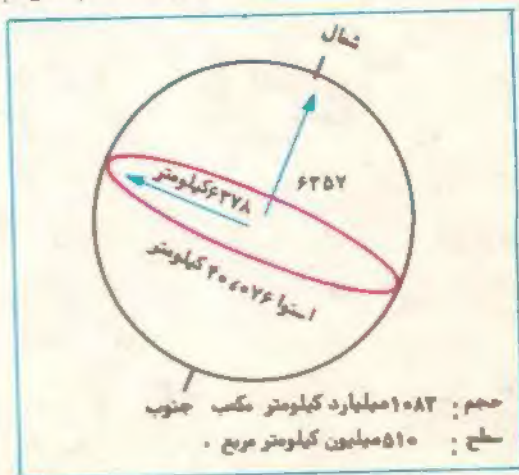 شمال
۶۳۵۷
۶۳۷۸کیلومتر
استوا ۴۰،۰۷۶ کیلومتر
جنوب
حجم : ۱۰۸۳میلیارد کیلومتر مکعب
سطح : ۵۱۰میلیون کیلومتر مربع .